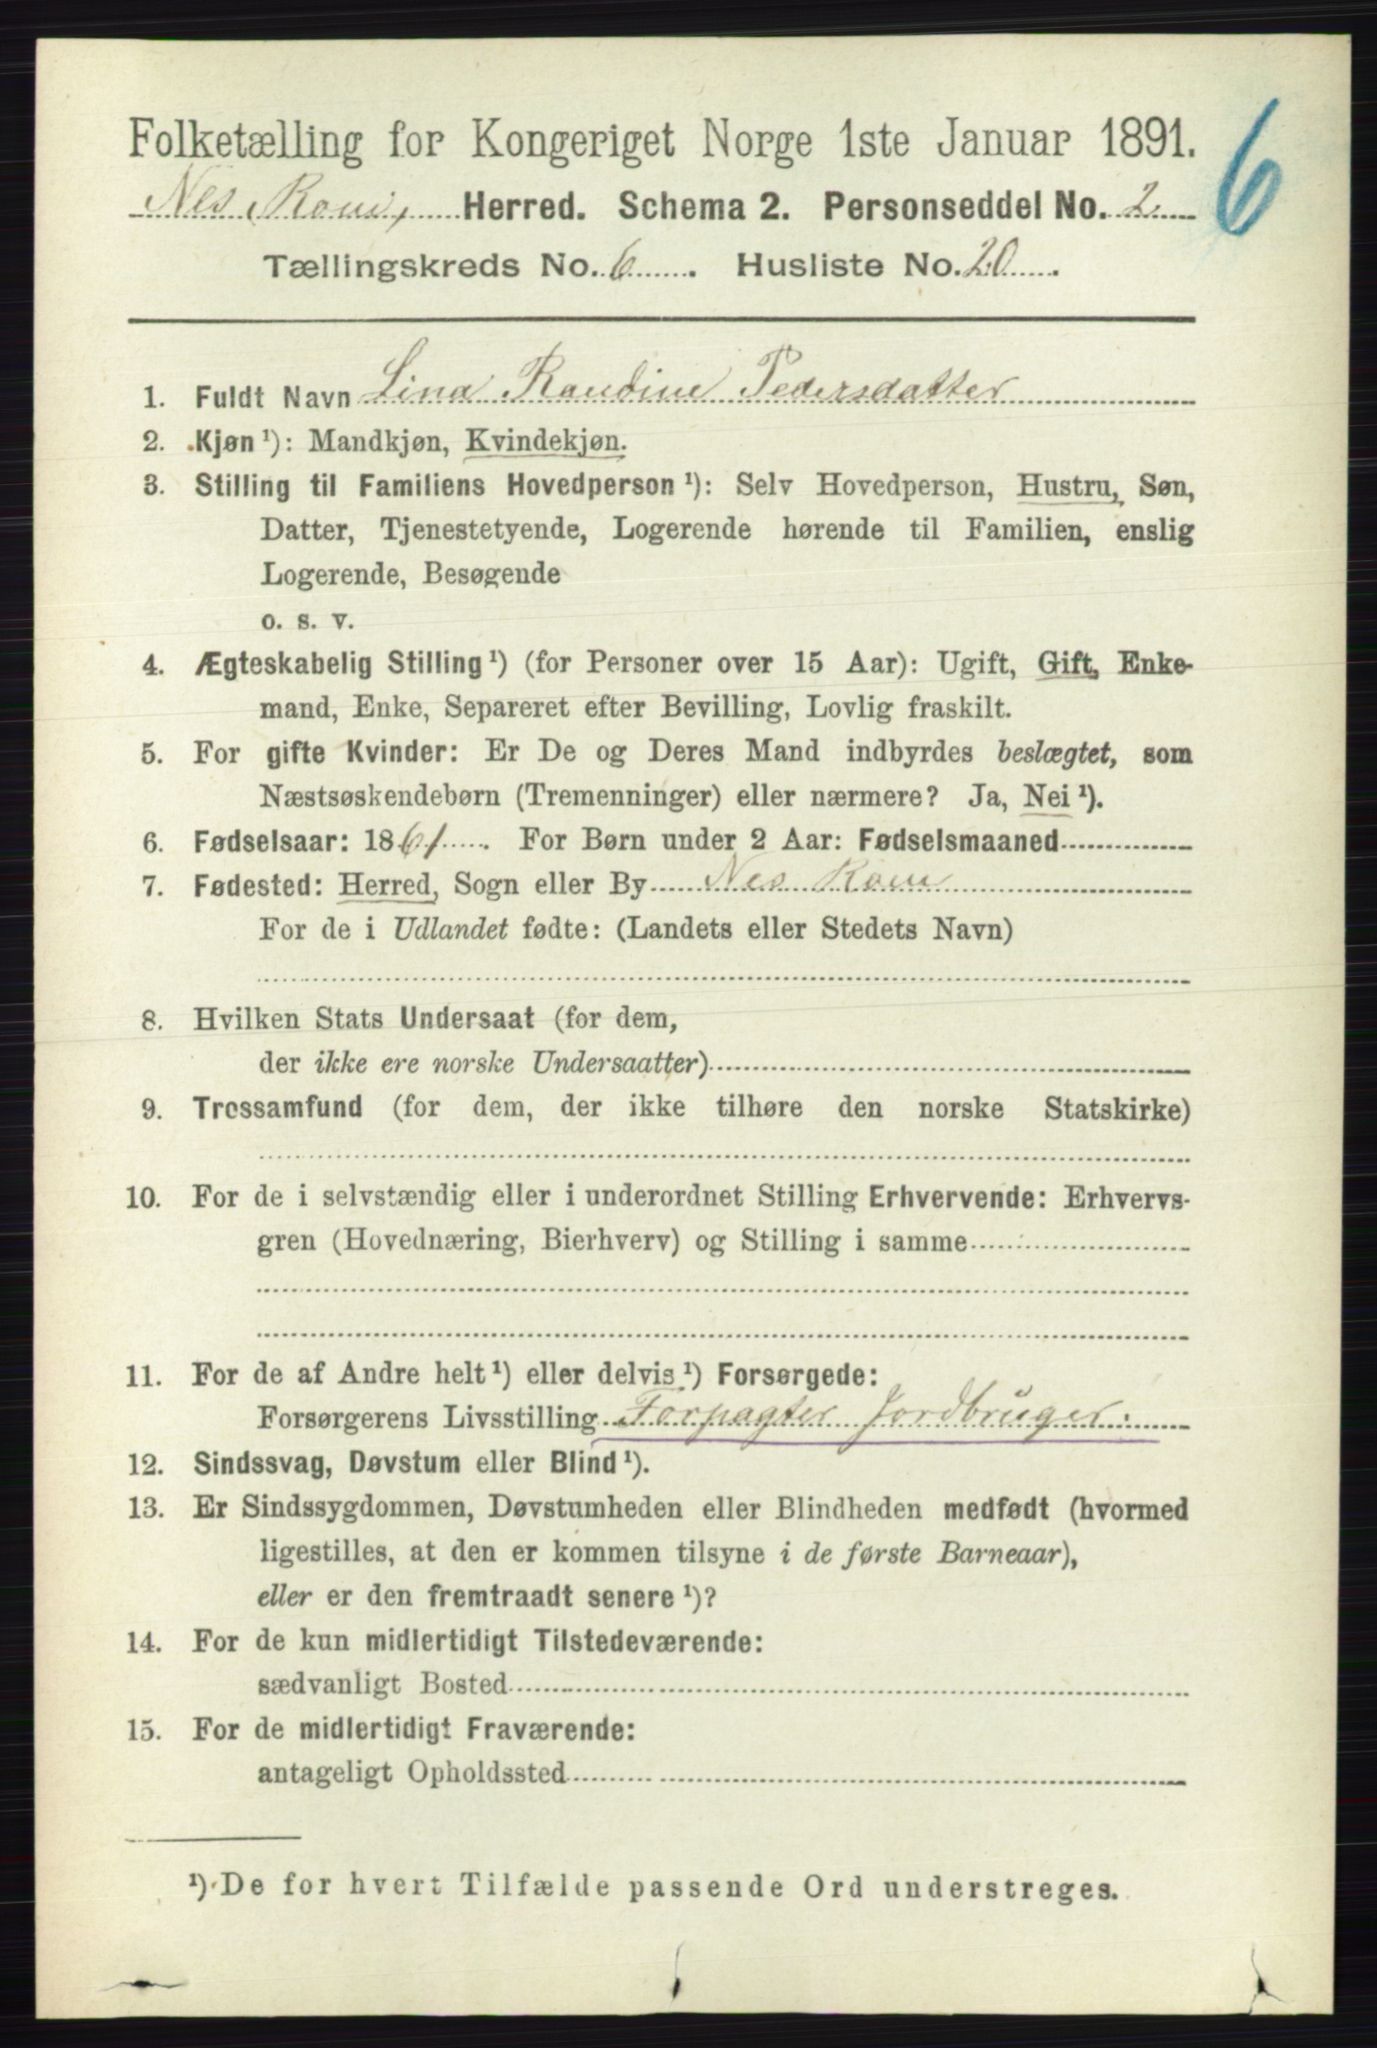 Folketælling for Kongeriget Norge 1ste Januar 1891.
6
Nes, Rom, Herred. Schema 2. Personseddel No. 2.
Tællingskreds No. 6. Husliste No. 20.
1. Fuldt Navn Lina Randine Pedersdatter
2. Kjøn ¹): Mandkjøn, Kvindekjøn.
3. Stilling til Familiens Hovedperson ¹): Selv Hovedperson, Hustru, Søn,
Datter, Tjenestetyende, Logerende hørende til Familien, enslig
Logerende, Besøgende
o. s. v.
4. Ægteskabelig Stilling ¹) (for Personer over 15 Aar): Ugift, Gift, Enke-
mand, Enke, Separeret efter Bevilling, Lovlig fraskilt.
5. For gifte Kvinder: Er De og Deres Mand indbyrdes beslægtet, som
Næstsøskendebørn (Tremenninger) eller nærmere? Ja, Nei ¹).
6. Fødselsaar: 1861. For Børn under 2 Aar: Fødselsmaaned
7. Fødested: Herred, Sogn eller By Nes Rom
For de i Udlandet fødte: (Landets eller Stedets Navn)
8. Hvilken Stats Undersaat (for dem,
der ikke ere norske Undersaatter)
9. Trossamfund (for dem, der ikke tilhøre den norske Statskirke)
10. For de i selvstændig eller i underordnet Stilling Erhvervende: Erhvervs-
gren (Hovednæring, Bierhverv) og Stilling i samme
11. For de af Andre helt ¹) eller delvis ¹) Forsørgede:
Forsørgerens Livsstilling Forpagter Jordbruger.
12. Sindssvag, Døvstum eller Blind ¹).
13. Er Sindssygdommen, Døvstumheden eller Blindheden medfødt (hvormed
ligestilles, at den er kommen tilsyne i de første Barneaar),
eller er den fremtraadt senere ¹)?
14. For de kun midlertidigt Tilstedeværende:
sædvanligt Bosted
15. For de midlertidigt Fraværende:
antageligt Opholdssted
¹) De for hvert Tilfælde passende Ord understreges.